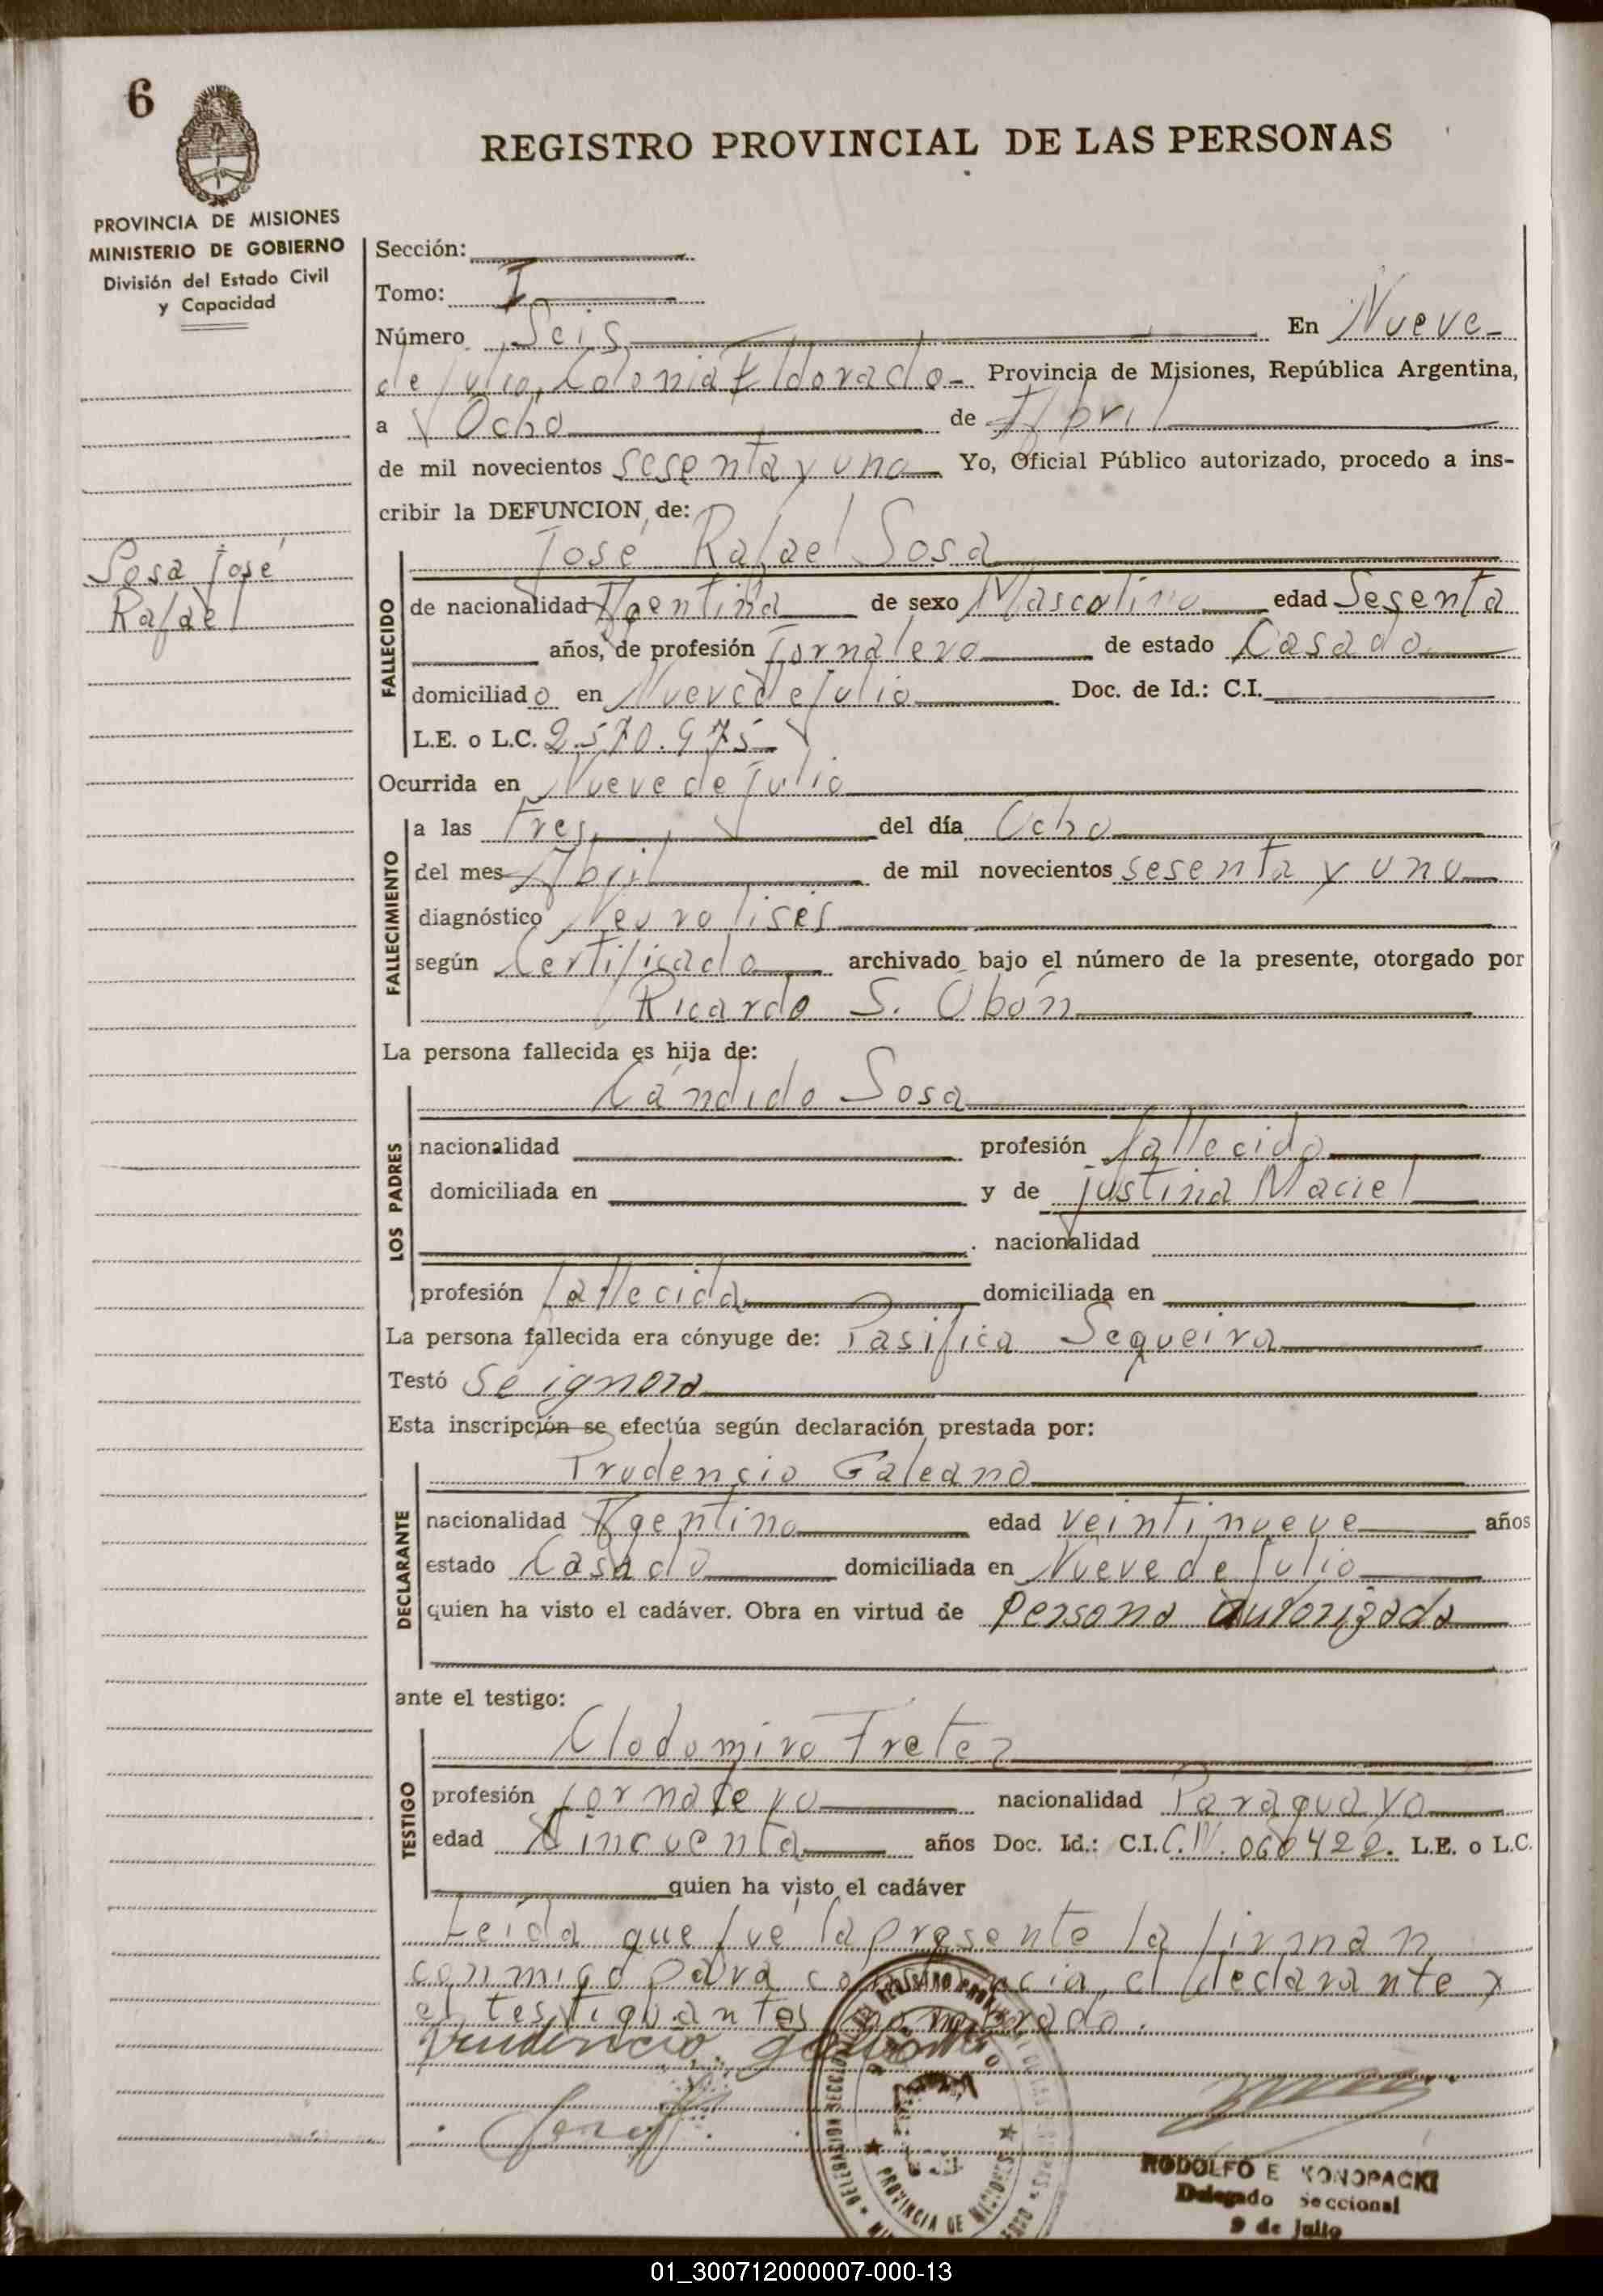 6
REGISTRO PROVINCIAL DE LAS PERSONAS
PROVINCIA DE MISIONES
MINISTERIO DE GOBIERNO
División del Estado Civil
y Capacidad
Sección:
Tomo: I
Número Seis En Nueve
de Julio, Colonia Eldorado - Provincia de Misiones, República Argentina,
a Ocho de Abril
de mil novecientos sesenta y uno Yo, Oficial Público autorizado, procedo a ins-
cribir la DEFUNCION de:
José Rafael Sosa
Sosa José
Rafael
FALLECIDO
de nacionalidad Agentina de sexo Mascolino edad Sesenta
años, de profesión Jornalero de estado Casado
domiciliado en Nueve de Julio Doc. de Id.: C.I.
L.E. o L.C. 2.570.975
Ocurrida en Nueve de Julio
FALLECIMIENTO
a las Tres del día Ocho
del mes Abril de mil novecientos sesenta y uno
diagnóstico Neurolises
según Certificado archivado bajo el número de la presente, otorgado por
Ricardo S. Obón
La persona fallecida es hija de:
LOS PADRES
Cándido Sosa
nacionalidad profesión fallecido
domiciliada en y de Justina Maciel
nacionalidad
profesión fallecida domiciliada en
La persona fallecida era cónyuge de: Pasifica Sequeira
Testó se ignora
Esta inscripción se efectúa según declaración prestada por:
DECLARANTE
Prudencio Galeano
nacionalidad Agentino edad veintinueve años
estado Casado domiciliada en Nueve de Julio
quien ha visto el cadáver. Obra en virtud de persona autorizada
ante el testigo:
TESTIGO
Clodomiro Fretez
profesión Jornalero nacionalidad Paraguayo
edad Cincuenta años Doc. Id.: C.I. C.N. 060422. L.E. o L.C.
quien ha visto el cadáver
Leida que fué la presente la firman
conmigo para constancia, el declarante y
el testiguantes nombrado.
Prudencio galeano
PROVINCIA DE MISIONES
RODOLFO E KONOPACKI
Delegado Seccional
9 de Julio
01_300712000007-000-13